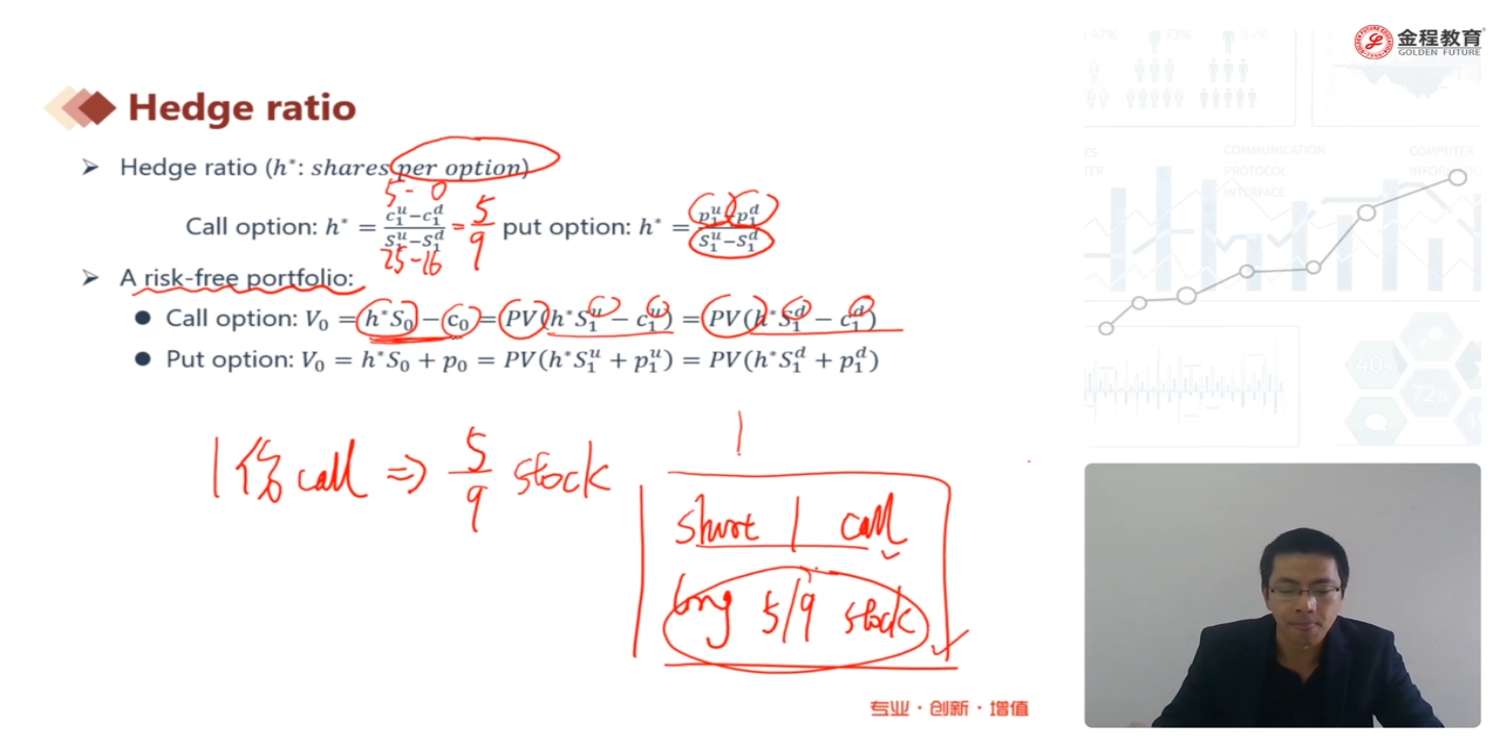 金程教育
GOLDEN FUTURE
Hedge ratio
➤ Hedge ratio (h*: shares per option)
5 - 0
Call option: h* = \frac{c_1^u - c_1^d}{S_1^u - S_1^d} = \frac{5}{9} put option: h* = \frac{p_1^u - p_1^d}{S_1^u - S_1^d}
25 - 16
➤ A risk-free portfolio:
● Call option: V_0 = h*S_0 - c_0 = PV(h*S_1^u - c_1^u) = PV(h*S_1^d - c_1^d)
● Put option: V_0 = h*S_0 + p_0 = PV(h*S_1^u + p_1^u) = PV(h*S_1^d + p_1^d)
1份 call ⇒ \frac{5}{9} stock
short 1 call
long 5/9 stock
专业·创新·增值
COMMUNICATION
PROTOCOL
INTERFACE
COMPUTER
40%
72%